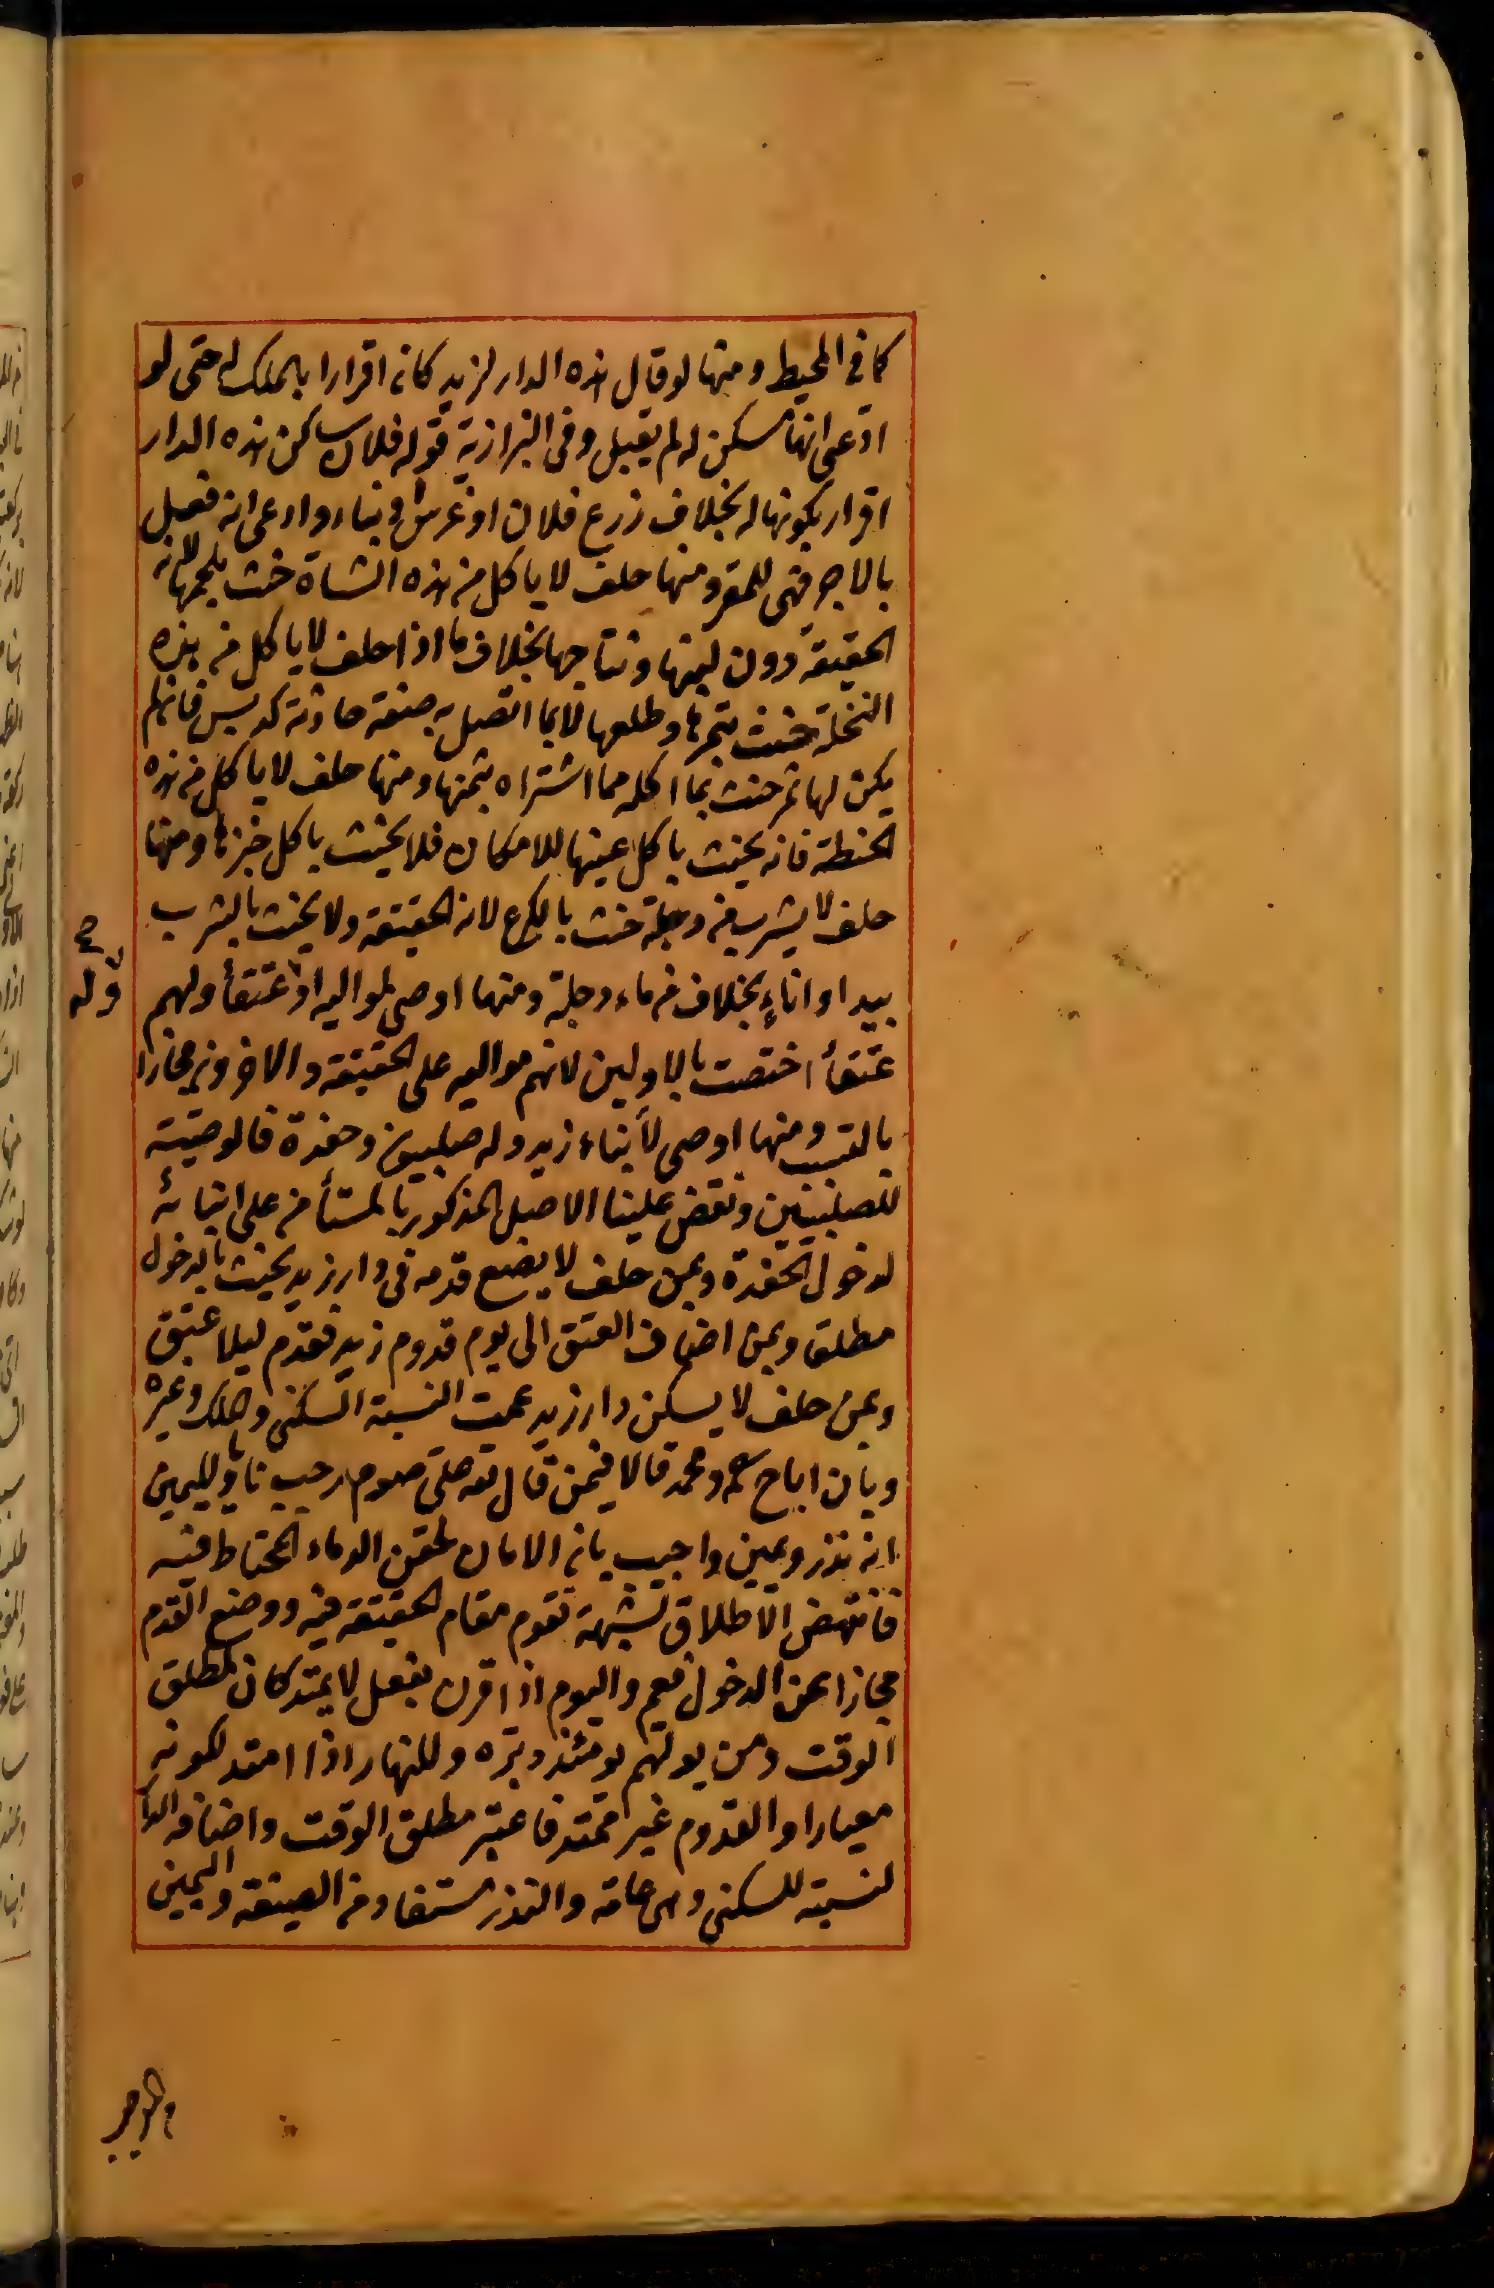 كما في المحيط ومنها لو قال هذه الدار لزيد كان اقرارا بالملك له حتى لو
ادعى انها مسكن له لم يقبل وفي البزازية قوله فلان ساكن هذه الدار
اقرار بكونها له بخلاف زرع فلان او غرس او بناء وادعى انه فعل
بالاجر فهي للمقر ومنها حلف لا ياكل من هذه الشاة حنث بلحمها لانه
الحقيقة دون لبنها ونتاجها بخلاف ما اذا حلف لا ياكل من هذه
النخلة حنث بثمرها وطلعها لا بما اتصل به صنعة حادثة كدبس فان لم
يكن لها ثمر حنث بما اكله مما اشتراه بثمنها ومنها حلف لا ياكل من هذه
الحنطة فانه يحنث باكل عينها للامكان فلا يحنث باكل خبزها ومنها
حلف لا يشرب من دجلة حنث بالكرع لانه الحقيقة ولا يحنث بالشرب
بيد او اناء بخلاف من ماء دجلة ومنها اوصى لمواليه وله عتقأ ولهم
عتقأ اختصت بالاولين لانهم مواليه على الحقيقة والاخرون مجازا
بالتسبب ومنها اوصى لأبناء زيد وله صلبيون وحفدة فالوصية
للصلبيين ونقض علينا الاصل المذكور بالمستأمن على ابنائه
لدخول الحفدة وبمن حلف لا يضع قدمه في دار زيد يحنث بالدخول
مطلقا وبمن اضاف العتق الى يوم قدوم زيد فقدم ليلا عتق
وبمن حلف لا يسكن دار زيد عمت النسبة السكنى والملك وغيره
وبان ابا ح سم ومحمد قالا فيمن قال لله علي صوم رجب ناويا لليمين
انه نذر ويمين واجيب بان الامان لحقن الدماء المحتاط فيه
فانتهض الاطلاق شبهة تقوم مقام الحقيقة فيه ووضع القدم
مجازا عن الدخول فعم واليوم اذا قرن بفعل لا يمتد كان لمطلق
الوقت ومن يولهم يومئذ دبره وللنهار اذا امتد لكونه
معيارا والقدوم غير ممتد فاعتبر مطلق الوقت واضافة الدار
لنسبته للسكنى وهي عامة والنذر مستفاد من الصيغة واليمين
وله صح